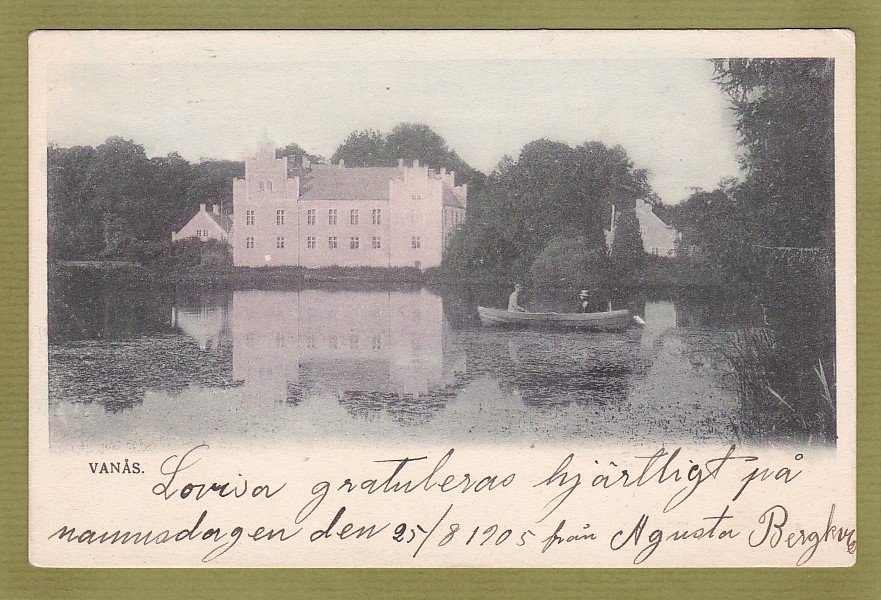 VANÅS.
Lovisa gratuleras hjärtligt på
namnsdagen den 25/8 1905 från Agusta